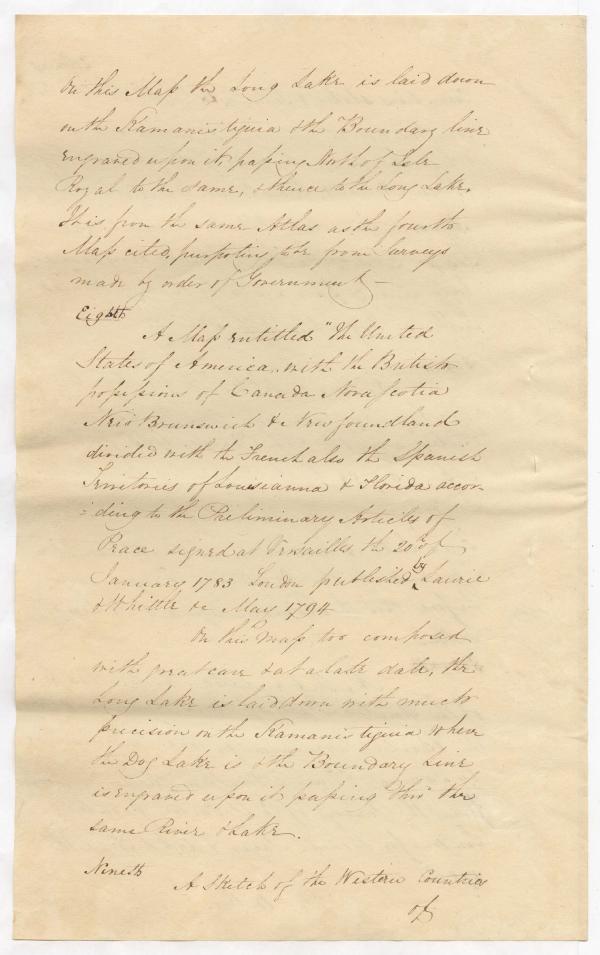 On this Map the Long Lake is laid down
on the Kamanistiguia & the Boundary line
engraved upon it, passing North of Isle
Royal to the same, & thence to the Long Lake.
It is from the same Atlas as the fourth
Map cited, purporting to be from Surveys
made by order of Government —
Eighth
A Map entitled "the United
States of America with the British
possessions of Canada Nova Scotia
New Brunswick & Newfoundland
divided with the French also the Spanish
Territories of Louisianna & Florida accor-
:ding to the Preliminary Articles of
Peace signed at Versailles the 20th of
January 1783 London published by Laurie
& Whittle &c May 1794
On this map too composed
with great care & at a late date, the
Long Lake is laid down with much
precision on the Kamanistiguia where
the Dog Lake is & the Boundary Line
is engraved upon it passing thro' the
same River & Lake.
Nineth
A Sketch of the Western Countries
of